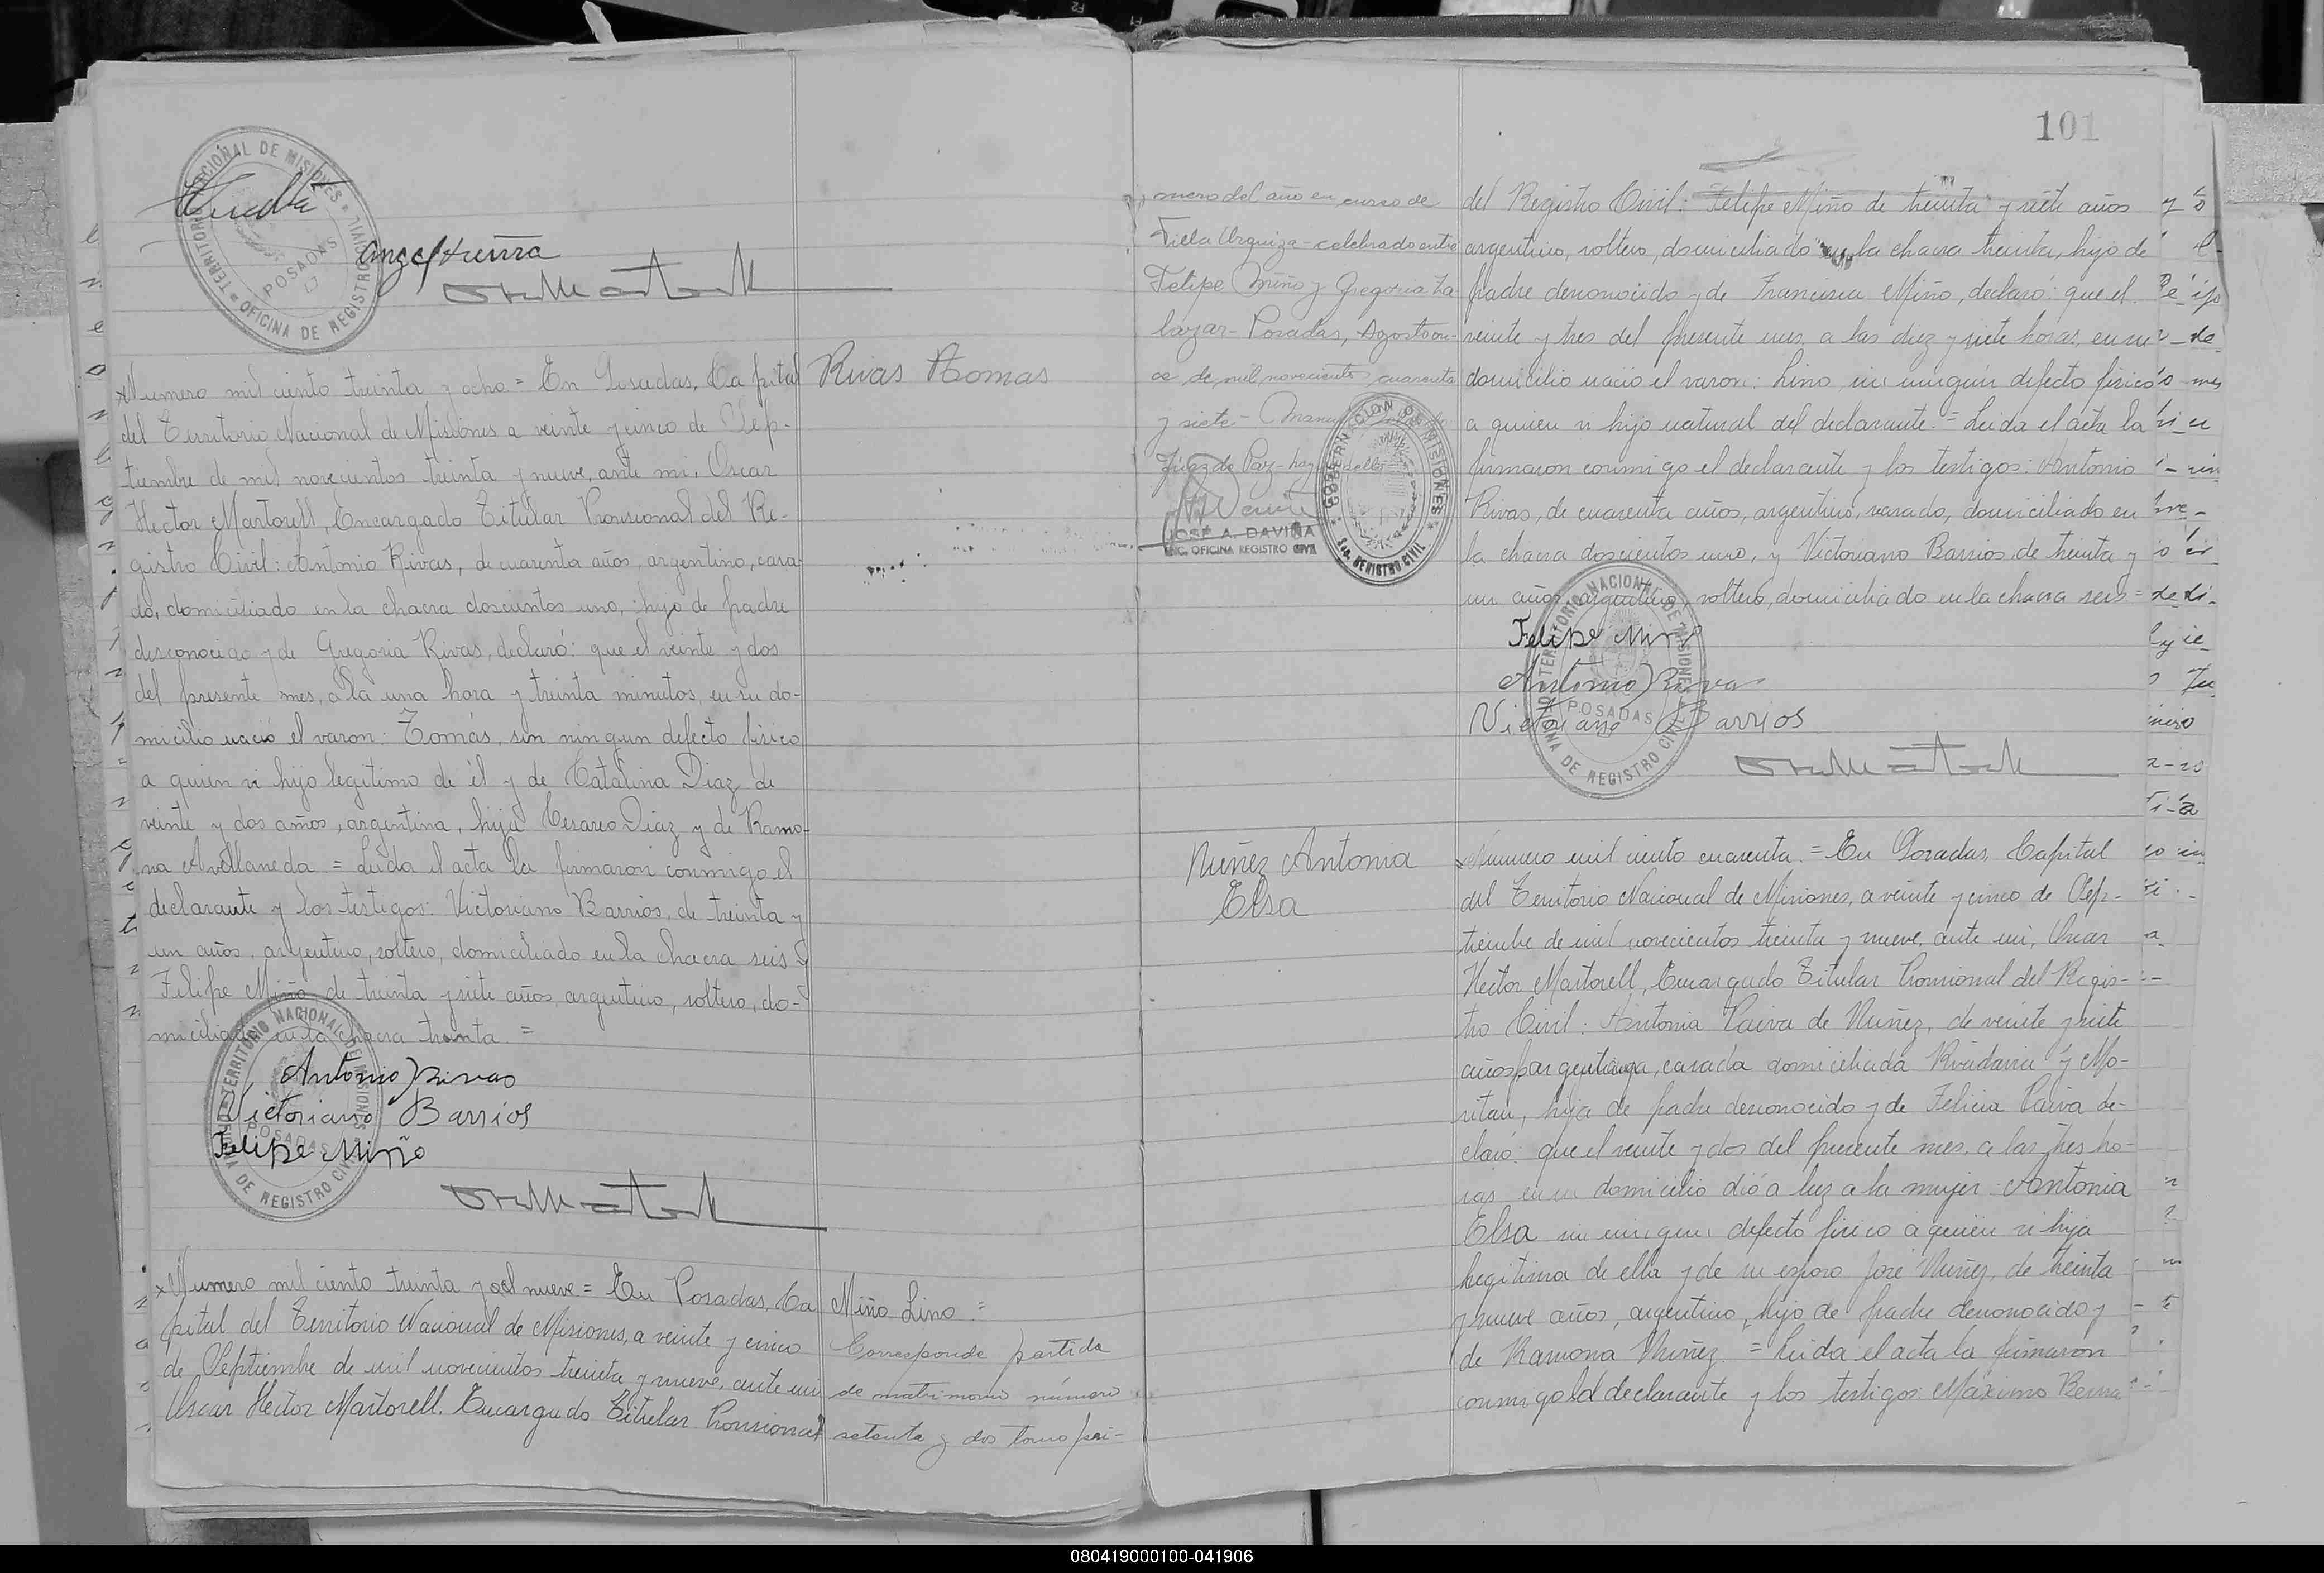 TERRITORIO NACIONAL DE MISIONES
OFICINA DE REGISTRO CIVIL
POSADAS
Rivas Tomas
Numero mil ciento treinta y ocho = En Posadas, Capital
del Territorio Nacional de Misiones a veinte y cinco de Sep-
tiembre de mil novecientos treinta y nueve, ante mi, Oscar
Hector Martorell, Encargado Titular Provisional del Re-
gistro Civil: Antonio Rivas, de cuarenta años, argentino, casa-
do, domiciliado en la chacra doscientos uno, hijo de padre
desconocido y de Gregoria Rivas, declaró: que el veinte y dos
del presente mes, a la una hora y treinta minutos, en su do-
micilio nació el varon: Tomás, sin ningun defecto fisico
a quien vi hijo legitimo de él y de Catalina Diaz de
veinte y dos años, argentina, hija Cesareo Diaz y de Ramo-
na Avellaneda = Leida el acta la firmaron conmigo el
declarante y los testigos: Victoriano Barrios, de treinta y
un años, argentino, soltero, domiciliado en la chacra seis y
Felipe Miño, de treinta y siete años, argentino, soltero, do-
miciliado en la chacra treinta. =
Antonio Rivas
Victoriano Barrios
Felipe Miño
TERRITORIO NACIONAL DE MISIONES
OFICINA DE REGISTRO CIVIL
POSADAS
Numero mil ciento treinta y nueve = En Posadas, Ca
pital del Territorio Nacional de Misiones, a veinte y cinco
de Septiembre de mil novecientos treinta y nueve, ante mi
Oscar Hector Martorell, Encargado Titular Provisional
Miño Lino =
Corresponde partida
de matrimonio número
setenta y dos tomo pri-
mero del año en curso de
Villa Urquiza - celebrado entre
Felipe Miño y Gregoria Za
lazar - Posadas, Agosto on-
ce de mil novecientos cuarenta
y siete -
Juez de Paz - hay
JOSÉ A. DAVIÑA
ENC. OFICINA REGISTRO CIVIL
GOBERNACION DE MISIONES
SEC. REGISTRO CIVIL
101
del Registro Civil: Felipe Miño de treinta y siete años
argentino, soltero, domiciliado en la chacra treinta, hijo de
padre desconocido y de Francisca Miño, declaró: que el
veinte y tres del presente mes, a las diez y siete horas, en su
domicilio nació el varon: Lino, sin ningún defecto fisico
a quien vi hijo natural del declarante. = Leida el acta la
firmaron conmigo el declarante y los testigos: Antonio
Rivas, de cuarenta años, argentino, casado, domiciliado en
la chacra doscientos uno, y Victoriano Barrios de treinta y
un años argentino, soltero, domiciliado en la chacra seis =
Felipe Miño
Antonio Rivas
Victoriano Barrios
TERRITORIO NACIONAL DE MISIONES
OFICINA DE REGISTRO CIVIL
POSADAS
Nuñez Antonia
Elsa
Numero mil ciento cuarenta. = En Posadas, Capital
del Territorio Nacional de Misiones, a veinte y cinco de Sep-
tiembre de mil novecientos treinta y nueve, ante mi, Oscar
Hector Martorell, Encargado Titular Provisional del Regis-
tro Civil: Antonia Paiva de Nuñez, de veinte y siete
años, argentina, casada domiciliada Rivadavia y Mo-
ritan, hija de padre desconocido y de Felicia Paiva de-
claró: que el veinte y dos del presente mes, a las tres ho-
ras, en su domicilio dió a luz a la mujer: Antonia
Elsa sin ningun defecto fisico a quien vi hija
legitima de ella y de su esposo José Nuñez, de treinta
y nueve años, argentino, hijo de padre desconocido y
de Ramona Nuñez. = Leida el acta la firmaron
conmigo la declarante y los testigos: Máximo
080419000100-041906